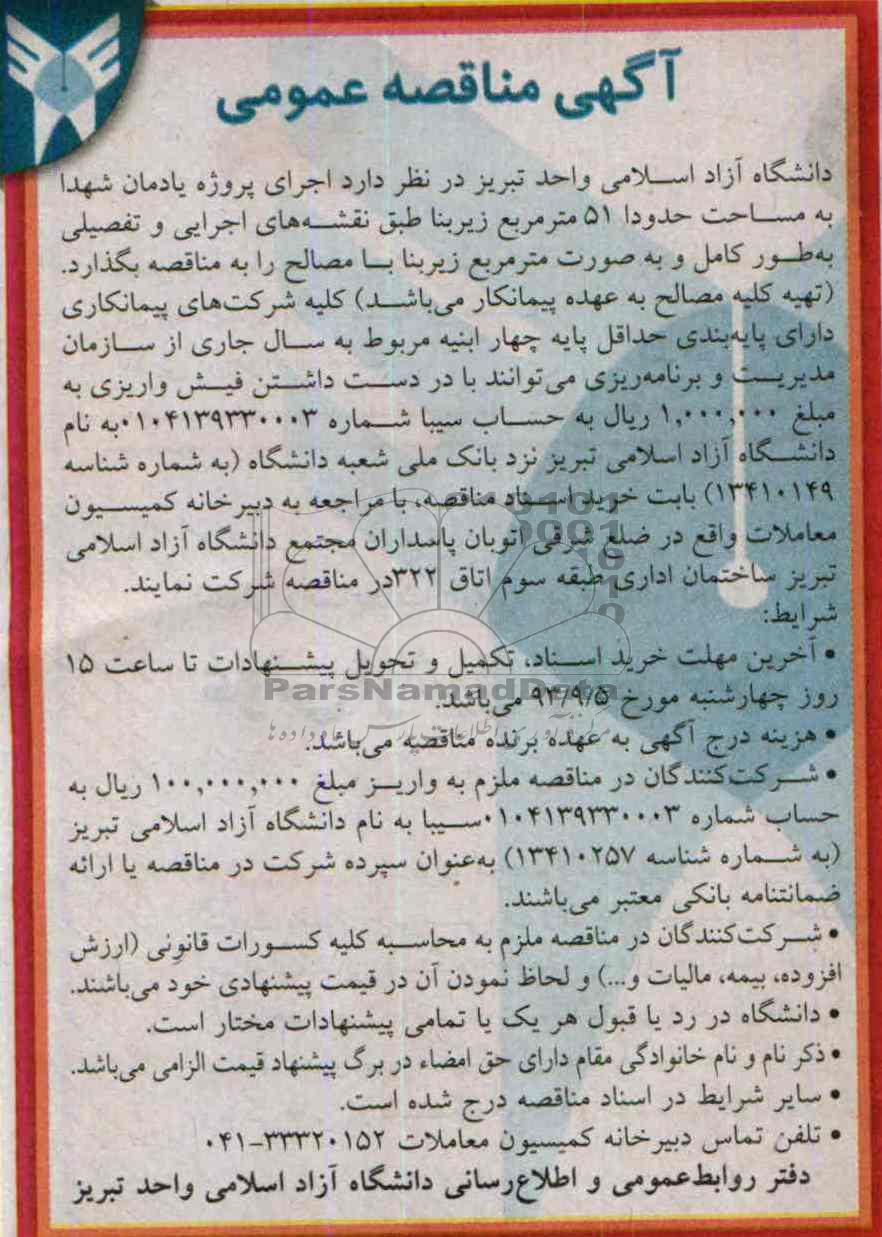 آگهی مناقصه عمومی
دانشگاه آزاد اسلامی واحد تبریز در نظر دارد اجرای پروژه یادمان شهدا
به مساحت حدودا ۵۱ مترمربع زیربنا طبق نقشه‌های اجرایی و تفصیلی
به‌طور کامل و به صورت مترمربع زیربنا با مصالح را به مناقصه بگذارد.
(تهیه کلیه مصالح به عهده پیمانکار می‌باشد) کلیه شرکت‌های پیمانکاری
دارای پایه‌بندی حداقل پایه چهار ابنیه مربوط به سال جاری از سازمان
مدیریت و برنامه‌ریزی می‌توانند با در دست داشتن فیش واریزی به
مبلغ ۱,۰۰۰,۰۰۰ ریال به حساب سیبا شماره ۰۱۰۴۱۳۹۳۳۰۰۰۳ به نام
دانشگاه آزاد اسلامی تبریز نزد بانک ملی شعبه دانشگاه (به شماره شناسه
۱۳۴۱۰۱۴۹) بابت خرید اسناد مناقصه، با مراجعه به دبیرخانه کمیسیون
معاملات واقع در ضلع شرقی اتوبان پاسداران مجتمع دانشگاه آزاد اسلامی
تبریز ساختمان اداری طبقه سوم اتاق ۳۲۲ در مناقصه شرکت نمایند.
شرایط:
• آخرین مهلت خرید اسناد، تکمیل و تحویل پیشنهادات تا ساعت ۱۵
روز چهارشنبه مورخ ۹۳/۹/۵ می‌باشد.
• هزینه درج آگهی به عهده برنده مناقصه می‌باشد.
• شرکت‌کنندگان در مناقصه ملزم به واریز مبلغ ۱۰۰,۰۰۰,۰۰۰ ریال به
حساب شماره ۰۱۰۴۱۳۹۳۳۰۰۰۳ سیبا به نام دانشگاه آزاد اسلامی تبریز
(به شماره شناسه ۱۳۴۱۰۲۵۷) به‌عنوان سپرده شرکت در مناقصه یا ارائه
ضمانتنامه بانکی معتبر می‌باشند.
• شرکت‌کنندگان در مناقصه ملزم به محاسبه کلیه کسورات قانونی (ارزش
افزوده، بیمه، مالیات و...) و لحاظ نمودن آن در قیمت پیشنهادی خود می‌باشند.
• دانشگاه در رد یا قبول هر یک یا تمامی پیشنهادات مختار است.
• ذکر نام و نام خانوادگی مقام دارای حق امضاء در برگ پیشنهاد قیمت الزامی می‌باشد.
• سایر شرایط در اسناد مناقصه درج شده است.
• تلفن تماس دبیرخانه کمیسیون معاملات ۳۳۳۲۰۱۵۲-۰۴۱
دفتر روابط‌عمومی و اطلاع‌رسانی دانشگاه آزاد اسلامی واحد تبریز
ParsNamadData